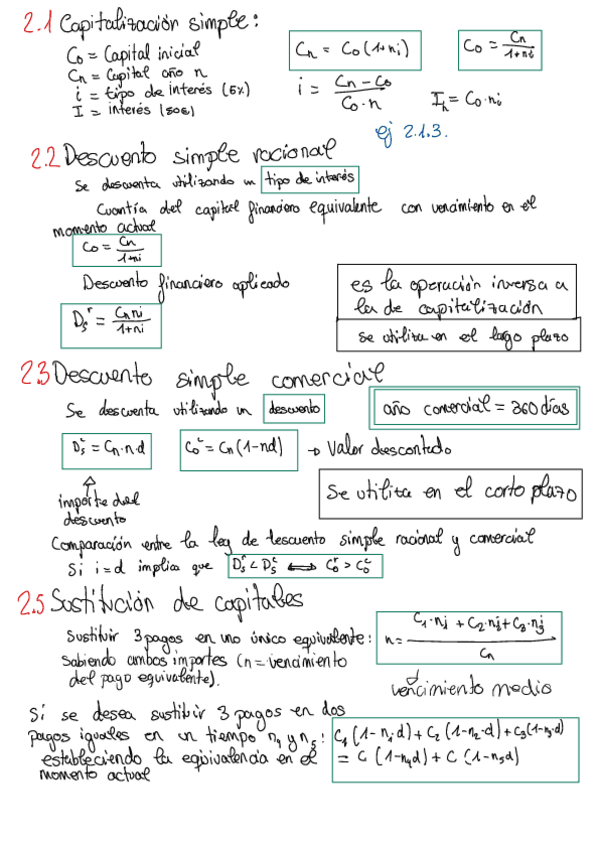 2.1 Capitalización simple:
C₀ = Capital inicial
Cn = Capital año n
i = tipo de interés (5%)
I = interés (50€)
Cn = C₀(1+ni)
C₀ = Cn/(1+ni)
i = (Cn - C₀)/(C₀·n)
In = C₀·ni
ej 2.1.3.
2.2 Descuento simple racional
Se descuenta utilizando un tipo de interés
Cuantía del capital financiero equivalente con vencimiento en el
momento actual
C₀ = Cn/(1+ni)
Descuento financiero aplicado
Dsʳ = Cn ni/(1+ni)
es la operación inversa a
la de capitalización
se utiliza en el largo plazo
2.3 Descuento simple comercial
Se descuenta utilizando un descuento
año comercial = 360 días
Dsᶜ = Cn·n·d
C₀ᶜ = Cn(1-nd) → Valor descontado
importe del
descuento
Se utiliza en el corto plazo
Comparación entre la ley de descuento simple racional y comercial
Si i=d implica que Dsʳ < Dsᶜ ⟺ C₀ʳ > C₀ᶜ
2.5 Sustitución de capitales
Sustituir 3 pagos en uno único equivalente:
sabiendo ambos importes (n = vencimiento
del pago equivalente).
n = (C₁·n₁ + C₂·n₂ + C₃·n₃)/Cn
vencimiento medio
Si se desea sustituir 3 pagos en dos
pagos iguales en un tiempo n₄ y n₅:
estableciendo la equivalencia en el
momento actual
C₁(1-n₁·d) + C₂(1-n₂·d) + C₃(1-n₃·d)
= C(1-n₄d) + C(1-n₅d)